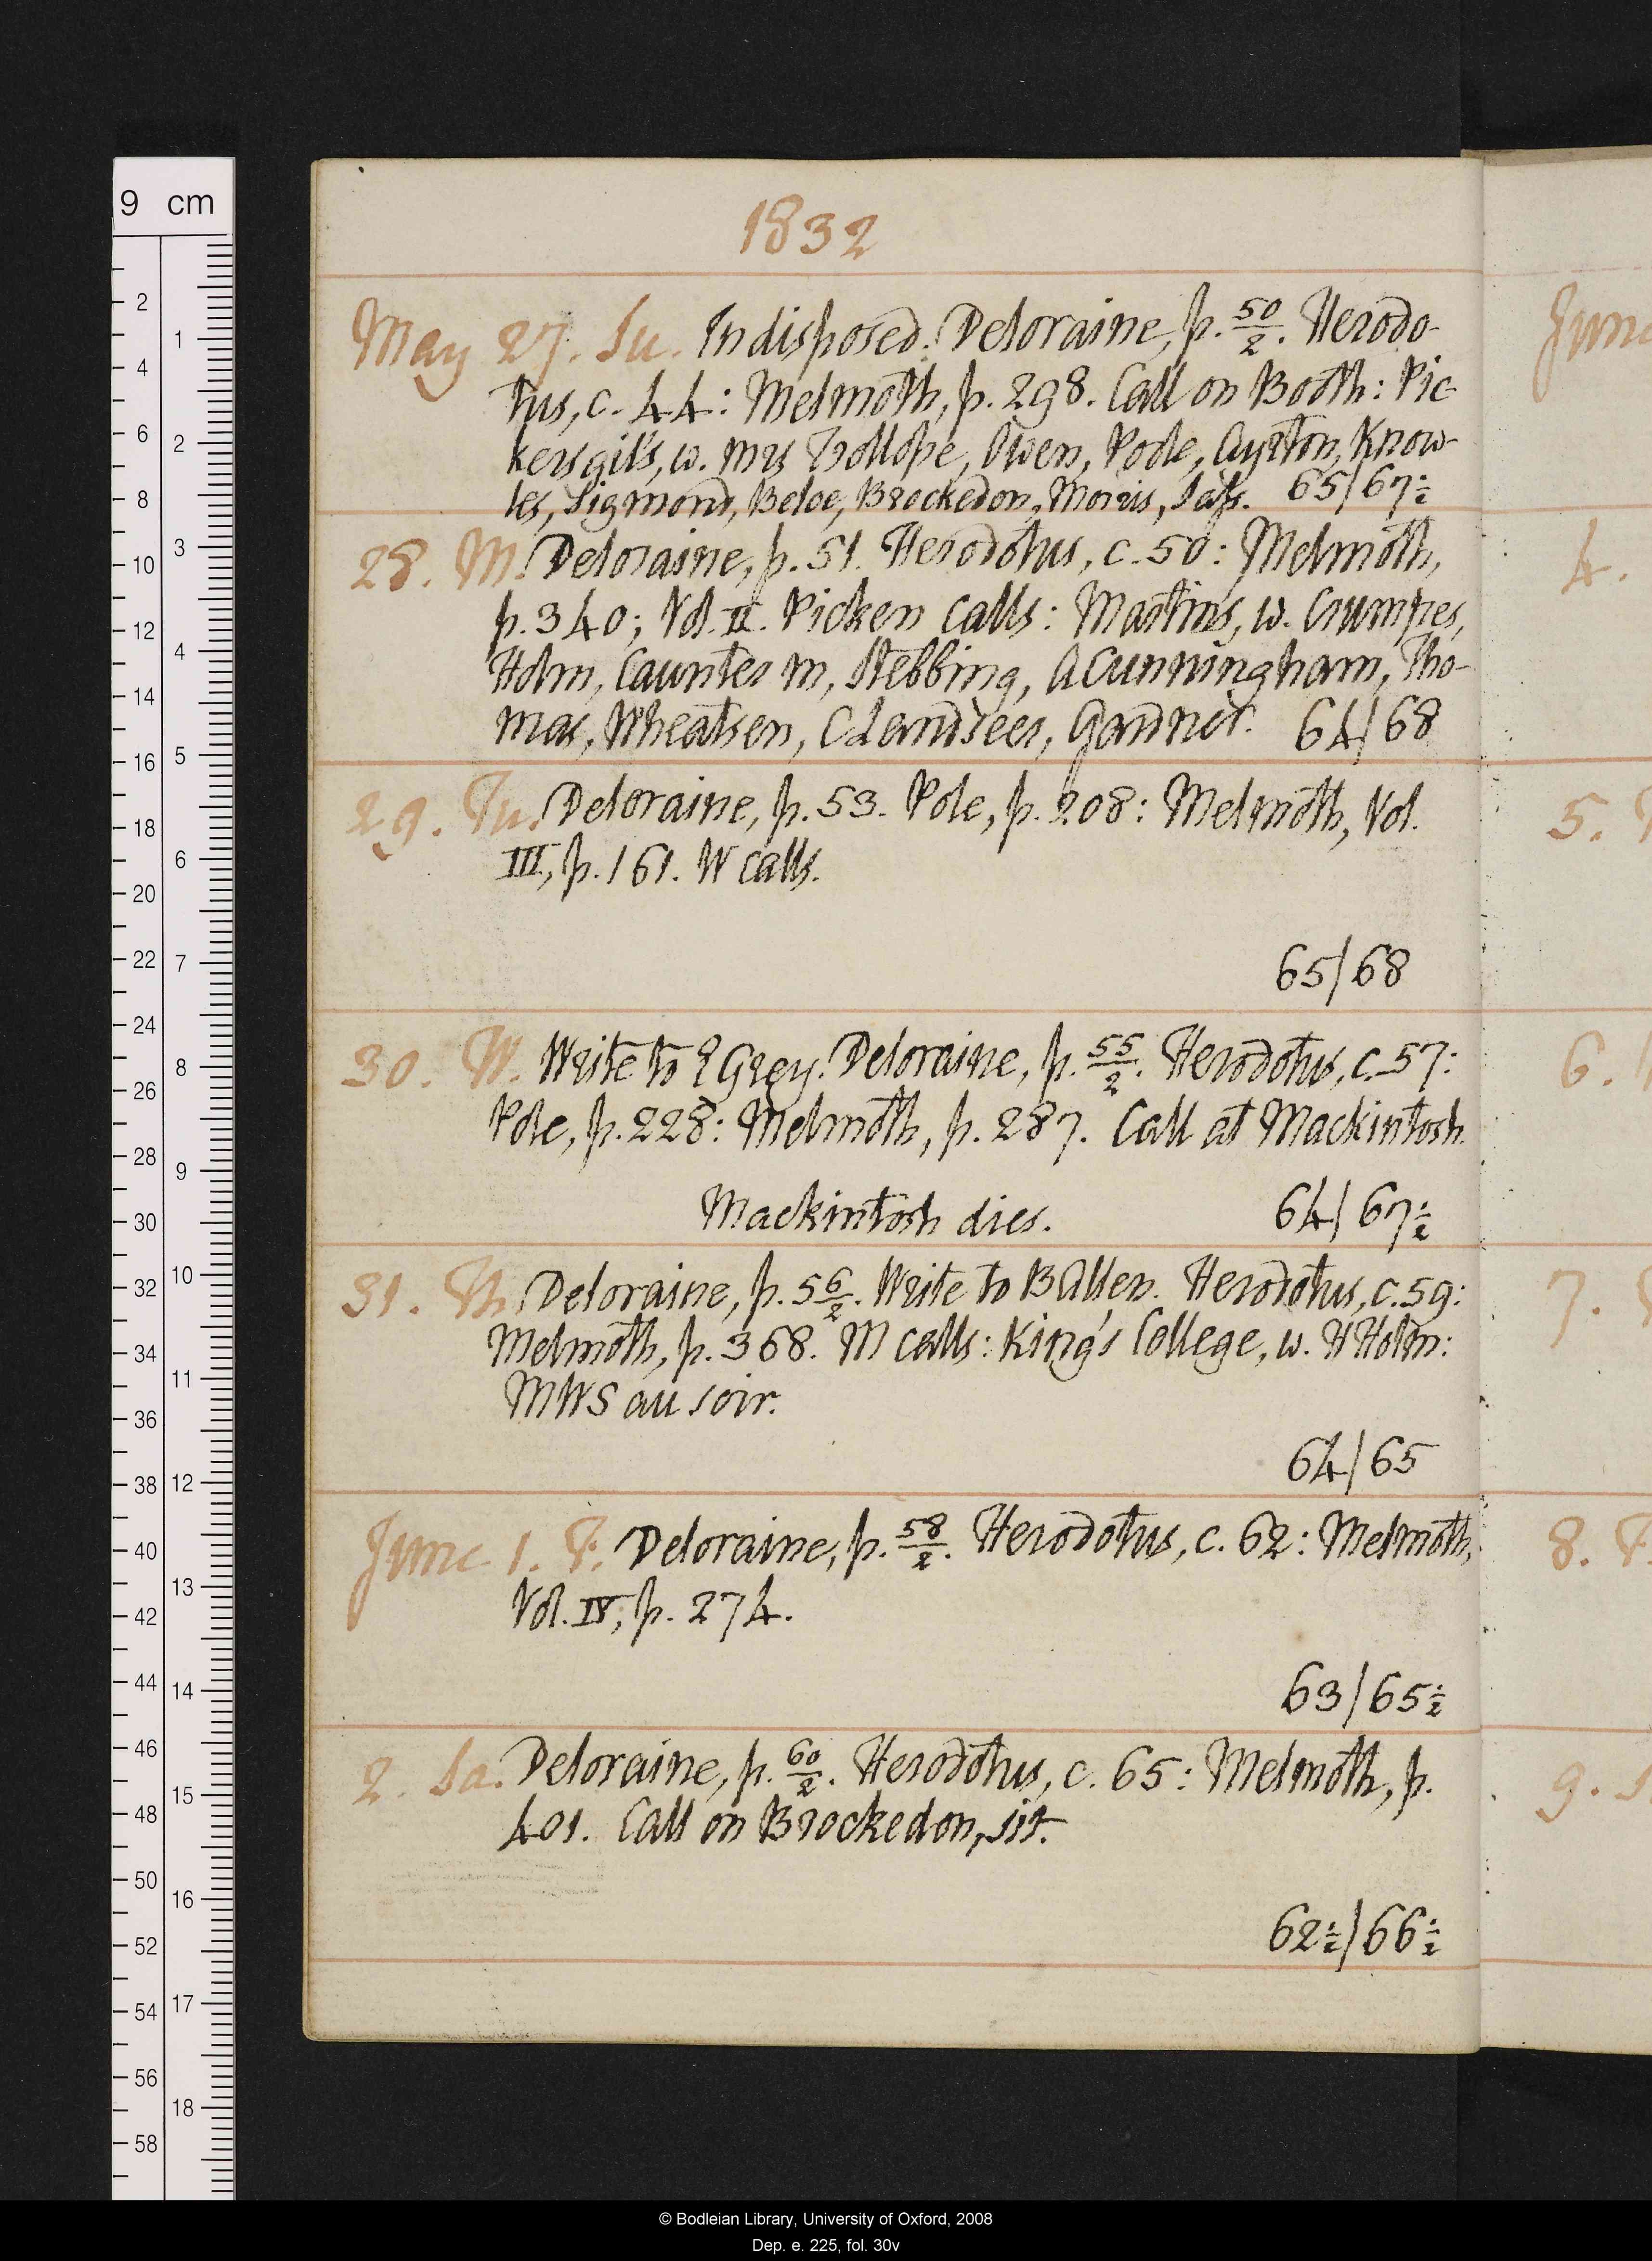 1832
May 27. Su. Indisposed. Deloraine, p. 50/2. Herodo-
tus, c. 44: Melmoth, p. 298. Call on Booth: Pic-
kersgil's, w. Mrs Trollope, Owen, Pole, Ayrton, Know-
les, Sigmond, Beloe, Brockedon, Moris, 65/67½
28. M. Deloraine, p. 51. Herodotus, c. 50: Melmoth,
p. 340; Vol. II. Picken calls: Martin's, w. Crumpes,
Holm, Caunter m, Stebbing, A Cunningham, Tho-
mas, Wheatsen, C Landseer, 64/68
29. Tu. Deloraine, p. 53. Pole, p. 208: Melmoth, Vol.
III, p. 161. W calls.
65/68
30. W. Write to E Grey. Deloraine, p. 55/2. Herodotus, c. 57:
Pole, p. 228: Melmoth, p. 287. Call at Mackintosh.
Mackintosh dies. 64/67½
31. Th. Deloraine, p. 56/2. Write to B Allen. Herodotus, c. 59:
Melmoth, p. 368. M calls: King's College, w. H Holm:
MWS au soir.
64/65
June 1. F. Deloraine, p. 58/2. Herodotus, c. 62: Melmoth,
Vol. IV, p. 274.
63/65½
2. Sa. Deloraine, p. 60/2. Herodotus, c. 65: Melmoth, p.
401. Call on Brockedon, sit.
62½/66½
June
4.
5.
6.
7.
8. F.
9.
9 cm
2
4
6
8
10
12
14
16
18
20
22
24
26
28
30
32
34
36
38
40
42
44
46
48
50
52
54
56
58
1
2
3
4
5
6
7
8
9
10
11
12
13
14
15
16
17
18
© Bodleian Library, University of Oxford, 2008
Dep. e. 225, fol. 30v